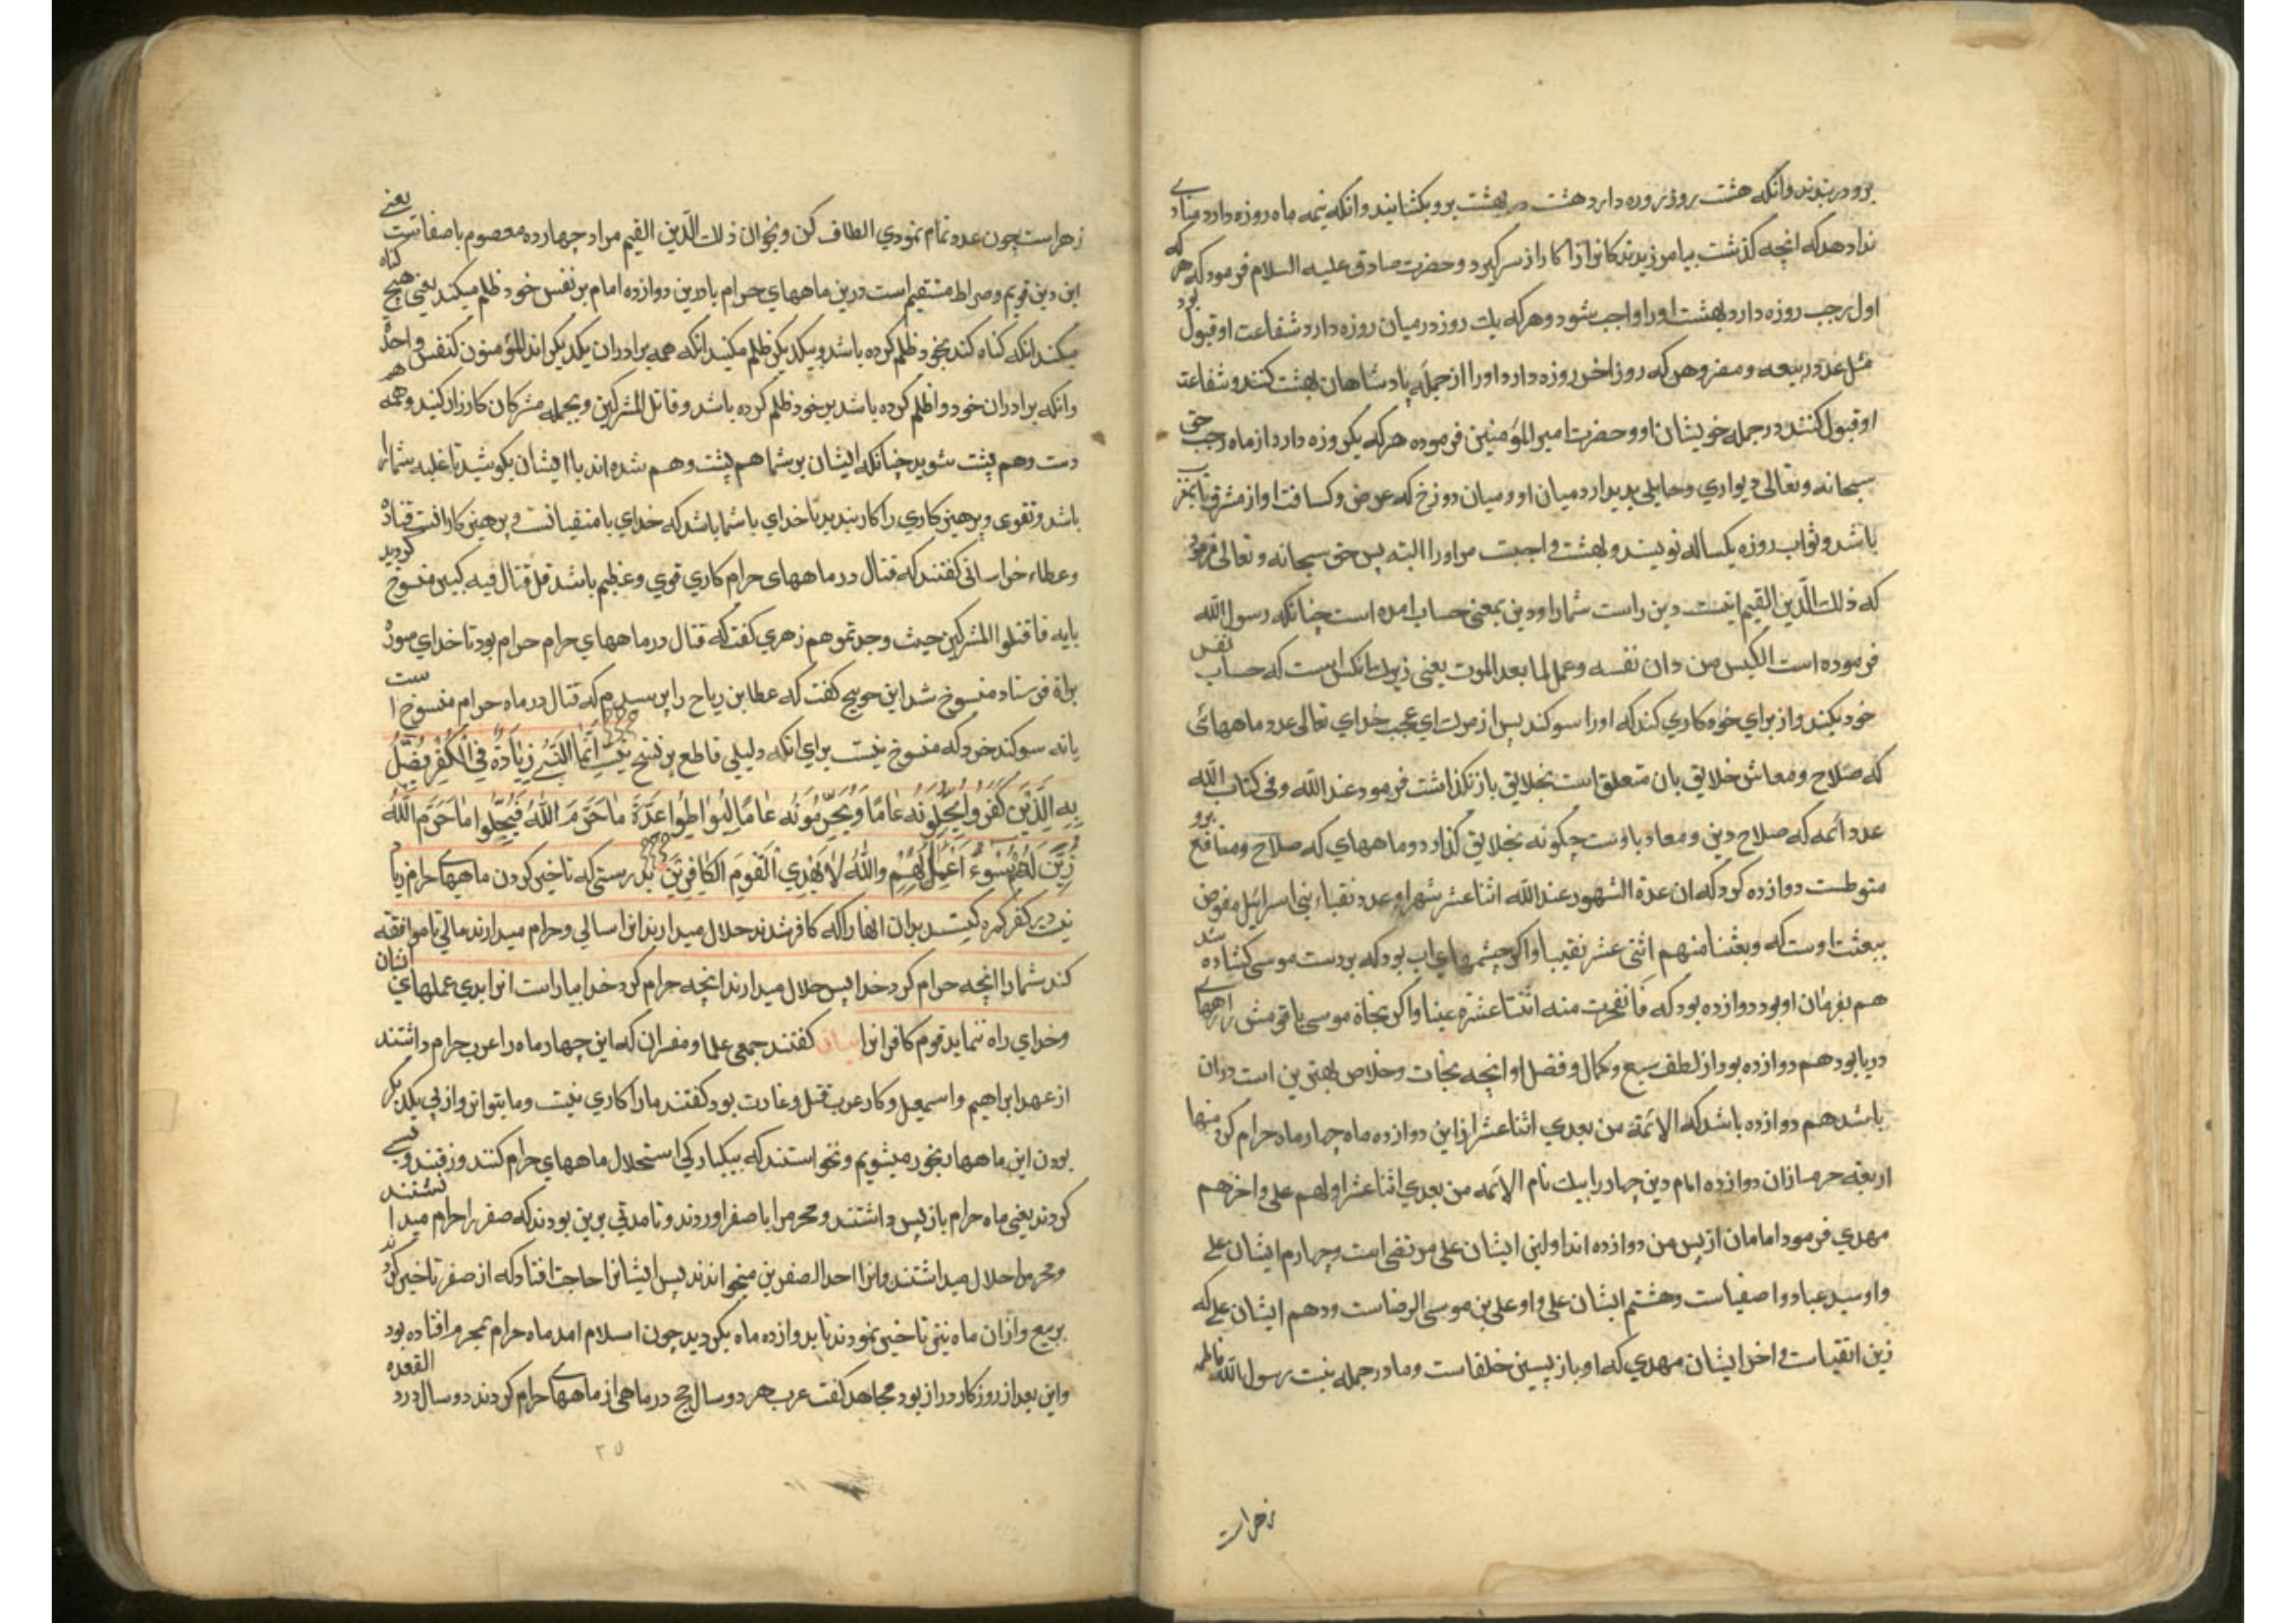 برو در بندند و انکه هشت روز روزه دارد هشت در بهشت برو بکشایند و انکه نیمه ماه روزه دارد منادی
ندا دهد که انچه کذشت بیامرزیدند کار از سر کیرد و حضرت صادق علیه السلام فرمود که هر که
اول رجب روزه دارد بهشت او را واجب شود و هر که یك روز در میان روزه دارد شفاعت او قبول بود
مثل عدد ربیعه و مضر و هر که روز اخر روزه دارد او را از جمله پادشاهان بهشت کنند و شفاعت
او قبول کنند در جمله خویشان او و حضرت امیر المؤمنین فرموده هر که یکروزه دارد از ماه رجب حق
سبحانه و تعالی دیواری و حایلی پدید ارد میان او و میان دوزخ که عرض و کسافت او از مشرق تا بمغرب
باشد و ثواب روزه یکساله نویسند و بهشت واجبت مر او را البته پس حق سبحانه و تعالی فرمود
که ذلك الدین القیم اینت دین راست شما را و دین بمعنی حساب امده است چنانکه رسول الله
فرموده است الکیس من دان نفسه و عمل لما بعد الموت یعنی زیرك انکس است که حساب نفس
خود بکند و از برای خود کاری کند که او را سو کند پس از مرك ای عجب خدای تعالی عدد ماههائی
که صلاح و معاش خلایق بان متعلق است بخلایق باز نکذاشت فرمود عند الله و فی کتاب الله
عدد ائمه که صلاح دین و معاد باوست چکونه بخلایق کذارد و ماههای که صلاح و منافع برو
منوطست دوازده کرد که ان عدة الشهور عند الله اثنا عشر شهرا و عدد نقباء بنی اسرائیل مفوض
ببعثت اوست که و بعثنا منهم اثنی عشر نقیبا و اکر چشمهای اب بود که بردست موسی کشاده شد
هم بفرمان او بود دوازده بود که فانفجرت منه اثنتا عشرة عینا و اکر نجاة موسی با قومش راههای
دریا بود هم دوازده بود از لطف و کمال و فضل او انچه نجات و خلاص بهترین است دران
باشد هم دوازده باشد که الائمة من بعدی اثنا عشر ازین دوازده ماه چهار ماه حرام کرد منها
اربعة حرم ازان دوازده امام دین چهار را بیك نام الائمه من بعدی اثنا عشر اولهم علی و اخرهم
مهدی فرمود امامان از پس من دوازده اند اولین ایشان علی مرتضی است و چهارم ایشان علی
و او سید عباد و اصفیاست و هشتم ایشان علی و او علی بن موسی الرضاست و دهم ایشان علی که
زین اتقیاست و اخر ایشان مهدی که او باز پسین خلفاست و مادر جمله بنت رسول الله فاطمه
زهراست
زهراست چون عدد تمام نمودی الطاف کن و بخوان ذلك الدین القیم مراد چهارده معصوم باصفاست یعنی
این دین قویم و صراط مستقیم است درین ماههای حرام یا درین دوازده امام بر نفس خود ظلم میکند یعنی هیچ کناه
میکند انکه کناه کند بخود ظلم کرده باشد و بیکدیکر ظلم مکنید انکه همه برادران یکدیکر اند المؤمنون کنفس واحدة
و انکه برادران خود را ظلم کرده باشد بر خود ظلم کرده باشد و قاتلوا المشرکین و بجمله مشرکان کارزار کنید و همه هم
دست و هم پشت شوید چنانکه ایشان بر شما هم پشت و هم شده اند با ایشان بکوشید تا غلبه شما را
باشد و تقوی و پرهیز کاری را کار بندید تا خدای با شما باشد که خدای با متقیانت و پرهیزکارانست قتاده
و عطاء خراسانی کفتند که قتال در ماههای حرام کاری قوی و عظیم باشد قل قتال فیه کبیر منسوخ کردید
بایه فاقتلوا المشرکین حیث وجدتموهم زهری کفت که قتال در ماههای حرام حرام بود تا خدای سورة
براة فرستاد منسوخ شد ابن جریج کفت که عطا بن ریاح را پرسیدم که قتال در ماه حرام منسوخ است
یا نه سوکند خورد که منسوخ نیست برای انکه دلیلی قاطع بر نسخ نیست اِنَّمَا النَّسِیءُ زِیَادَةٌ فِی الْکُفْرِ یُضَلُّ
بِهِ الَّذِیْنَ کَفَرُوا یُحِلُّونَهُ عَامًا وَیُحَرِّمُونَهُ عَامًا لِیُوَاطِئُوا عِدَّةَ مَا حَرَّمَ اللهُ فَیُحِلُّوا مَا حَرَّمَ اللهُ
زُیِّنَ لَهُمْ سُوءُ اَعْمَالِهِمْ وَاللهُ لَا یَهْدِی الْقَوْمَ الْکَافِرِیْنَ بدرستی که تاخیر کردن ماههای حرام زیاد
نیست در کفر کمره کیتسد بدان انها را که کافر شدند حلال میدارند انرا سالی و حرام میدارند سالی تا موافقه
کند شمار را انچه حرام کرد خدا پس حلال میدارند انچه حرام کرد خدا بیاراست انرا بدی عملهای ایشان
و خدای راه ننماید قوم کافرانرا بیان کفتند جمعی علما و مفسران که این چهار ماه را عرب حرام داشتند
از عهد ابراهیم و اسمعیل و کار عرب قتل و غارت بود کفتند ما را کاری نیست و ما بتواتر و از پی یکدیکر
بودن این ماهها رنجور میشویم و نخواستند که بیکبارکی استحلال ماههای حرام کنند و رفتند و نسی
کردند یعنی ماه حرام باز پس داشتند و محرم را با صفر اوردند و تا مدتی برین بودند که صفر را حرام میداشتند
و محرم را حلال میداشتند و انرا احد الصفرین میخواندند پس ایشانرا حاجت افتاد که از صفر تاخیر کردند
بربیع و ازان ماه نیز تاخیر نمودند تا بدوازده ماه بکردید چون اسلام امد ماه حرام بمحرم افتاده بود
و این بعد از روزکار دراز بود مجاهد کفت عرب هر دو سال حج در ماهی از ماههای حرام کردند دو سال در ذی القعده